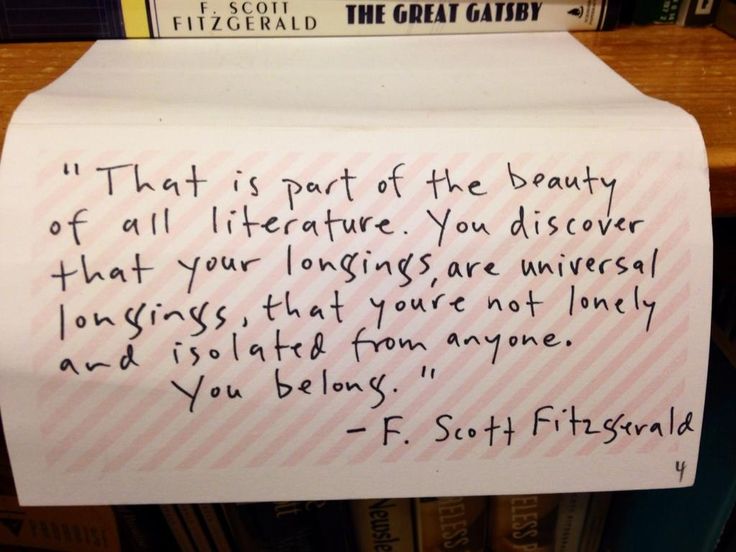 F. SCOTT
FITZGERALD THE GREAT GATSBY
"That is part of the beauty
of all literature. You discover
that your longings, are universal
longings, that you're not lonely
and isolated from anyone.
You belong."
- F. Scott Fitzgerald
4